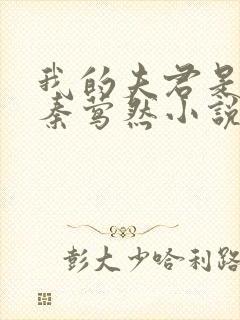 我的夫君是
秦莺然小说
彭大少哈利路